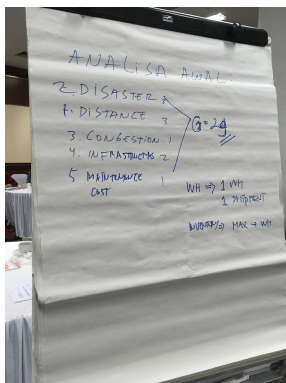 ANALISA AWAL.
2. DISASTER 2
1. DISTANCE 3
3. CONGESTION 1
4. INFRASTRUCTURE 2
5 MAINTENANCE 1
COST
WH ⇒ 1 WH
1
INVENTORY ⇒ MAX → WH